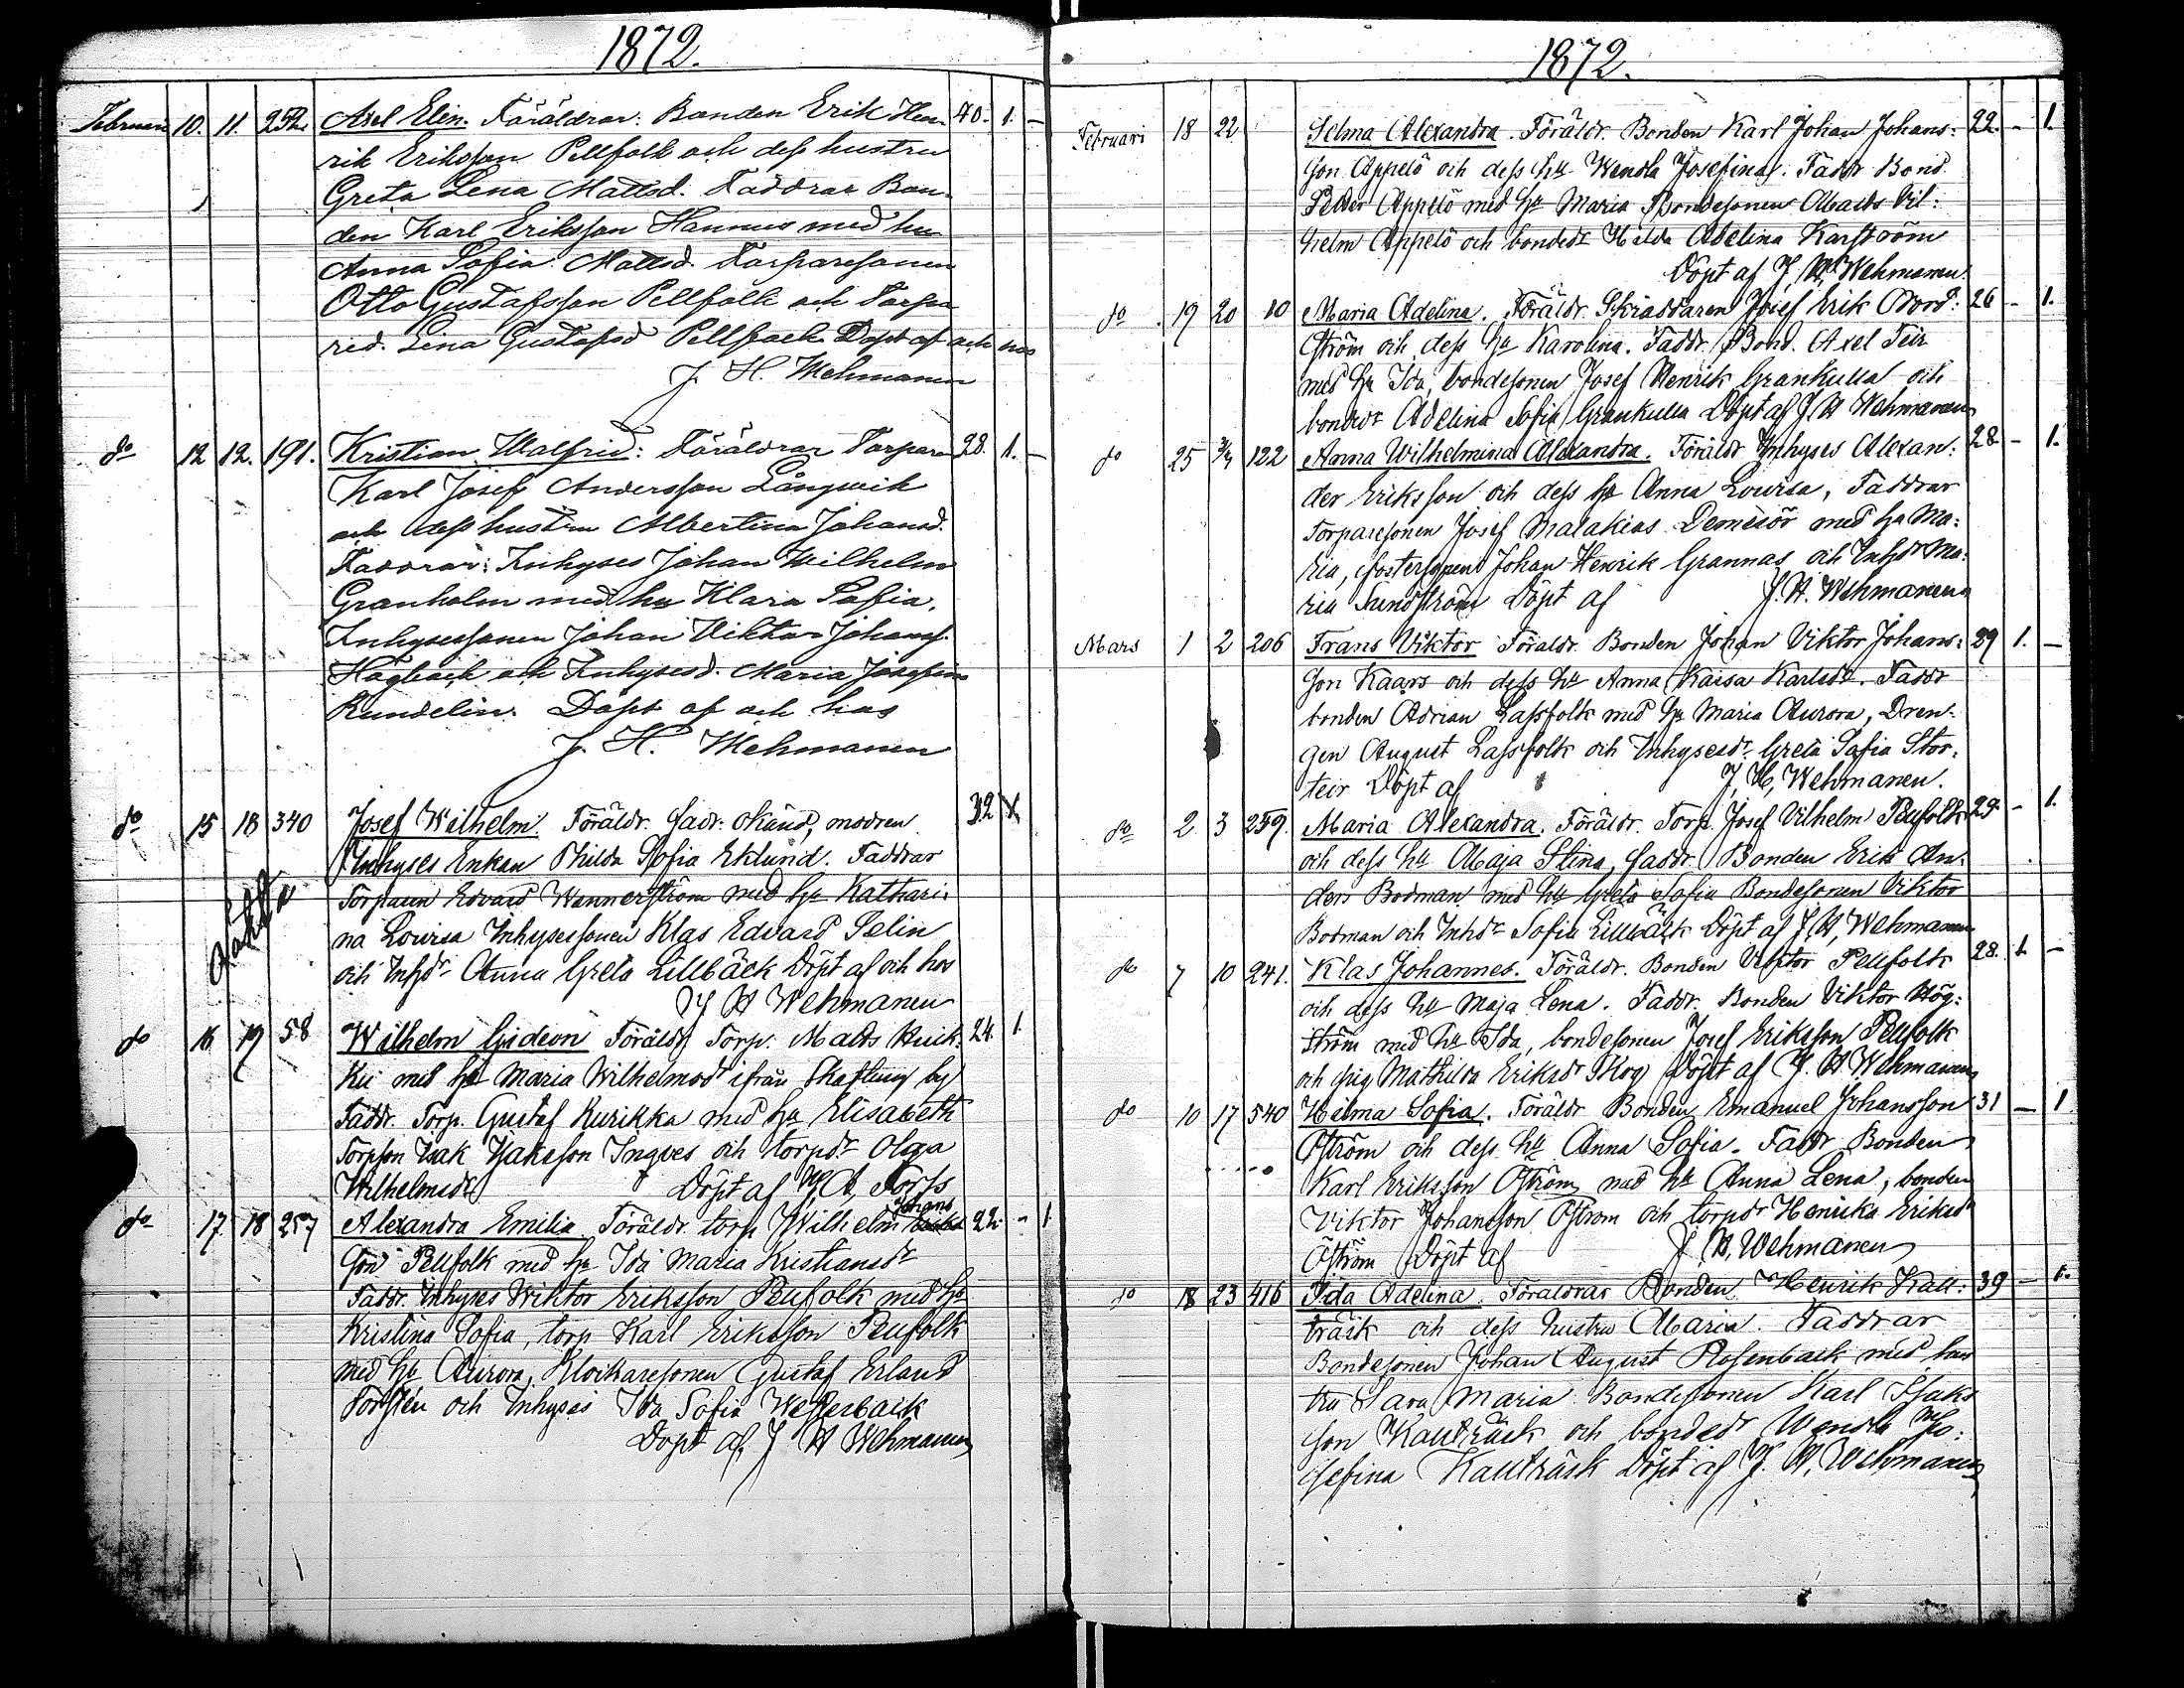 1872.
Februari 10. 11. 252. Axel Elin. Föräldrar: Bonden Erik Hen- 40. 1. -
rik Eriksson Pellfolk och dess hustru
Greta Lena Mattsd. Faddrar Bon-
den Karl Eriksson Hannus med hu
Anna Sofia Mattsd. Torparesonen
Otto Gustafsson Pellfolk och Torpa
red. Lina Gustafsd Pellfolk Döpt af och hos
J. H. Wehmanen
do 12 12. 191. Kristian Walfrid: Föräldrar Torparen 28. 1. -
Karl Josef Andersson Långwik
och dess hustru Albertina Johansd.
Faddrar: Inhyses Johan Wilhelm
Granholm med hu Klara Sofia,
Inhysessonen Johan Viktor Johanss.
Högback och Inhysesd. Maria Josefina
Rundelin. Döpt af och hos
J. H. Wehmanen
do 15 18 340 Josef Wilhelm. Föräldr. fadr: okänd, modren 32
Inhyses Enkan Sofia Eklund. Faddrar
Torparen Edvard Wennerström med hu Kathari-
na Lovisa Inhysessonen Klas Edvard Selin
och Inhdr Anna Greta Lillbäck Döpt af och hos
J H Wehmanen
do 16 19 58 Wilhelm Gideon Föräldr Torp. Matts 24. 1.
med hu Maria Wilhelmsdr ifrån Skaftung by
Faddr. Torp. Gustaf Kurikka med hu Elisabeth
Torpson Isak Isaksson Ingves och torpdr Olga
Wilhelmsdr Döpt af Torss
do 17. 18 257 Alexandra Emilia Föräldr. torp Wilhelm Johans 22. - 1.
son Pellfolk med hu Ida Maria Kristiansdr
Faddr. Inhyses Wiktor Eriksson Pellfolk med hu
Kristina Sofia, torp Karl Eriksson Pellfolk
med hu Aurora, Klockaresonen Gustaf Erland
Torstén och Inhyses Ida Sofia Westerback
Döpt af J H Wehmanen
1872.
Februari 18 22 Selma Alexandra. Föräldr. Bonden Karl Johan Johans- 22. - 1.
son Appelö och dess hu Wendla Josefina. Faddr Bond.
Petter Appelö med hu Maria Bondesonen Matts Vil-
helm Appelö och bondedr Hilda Adelina Karström
Döpt af J. H. Wehmanen.
do 19 20 10 Maria Adelina. Föräldr. Skräddaren Josef Erik Nord- 26 - 1.
ström och dess hu Karolina. Faddr. Bond. Axel Teir
med hu Ida, bondesonen Josef Henrik Grankulla och
bondedr Adelina Sofia Grankulla Döpt af J. H Wehmanen
do 25 3/4 122 Anna Wilhelmina Alexandra. Föräldr Inhyses Alexan- 28 - 1.
der Eriksson och dess hu Anna Lovisa, Faddrar
Torparesonen Josef Malakias Demesör med hu Ma-
ria, fostersonen Johan Henrik Grannas och Inhdr Ma-
ria Sundström Döpt af J. H. Wehmanen
Mars 1 2 206 Frans Viktor Föräldr. Bonden Johan Viktor Johans- 29 1. -
son Kaars och dess hu Anna Kaisa Karlsdr. Faddr
bonden Adrian Lassfolk med hu Maria Aurora, Dren-
gen August Lassfolk och Inhysesdr Greta Sofia Stor-
teir Döpt af J, H, Wehmanen.
do 2 3 259. Maria Alexandra. Föräldr. Torp. Josef Vilhelm Pellfolk 29. - 1.
och dess hu Maja Stina, faddr. Bonden Erik An-
ders Bodman med hu Greta Sofia Bondesonen Viktor
Bodman och Inhdr Sofia Lillbäck Döpt af J, H, Wehmanen
do 7 10 241. Klas Johannes. Föräldr. Bonden Viktor Pellfolk 28. 1. -
och dess hu Maja Lena. Faddr. Bonden Viktor Hög-
ström med hu Ida, bondesonen Josef Eriksson Pellfolk
och pig Mathilda Eriksdr Skog Döpt af J. H Wehmanen
do 10 17 540 Hilma Sofia. Föräldr Bonden Emanuel Johansson 31 - 1
Öström och dess hu Anna Sofia. Faddr Bonden
Karl Eriksson Öström med hu Anna Lena, bonden
Viktor Johansson Öström och torpdr Henrika Eriksdr
Öström Döpt af J. H. Wehmanen
do 18 23 416 Ida Adelina. Föräldrar Bonden Henrik Kall- 39 - 1.
träsk och dess hustru Maria. Faddrar
Bondesonen Johan August Rosenback med hus
tru Sara Maria Bondesonen Karl Isaks
son Kallträsk och bondedr Wendla Jo-
sefina Kallträsk Döpt af J. H. Wehmanen